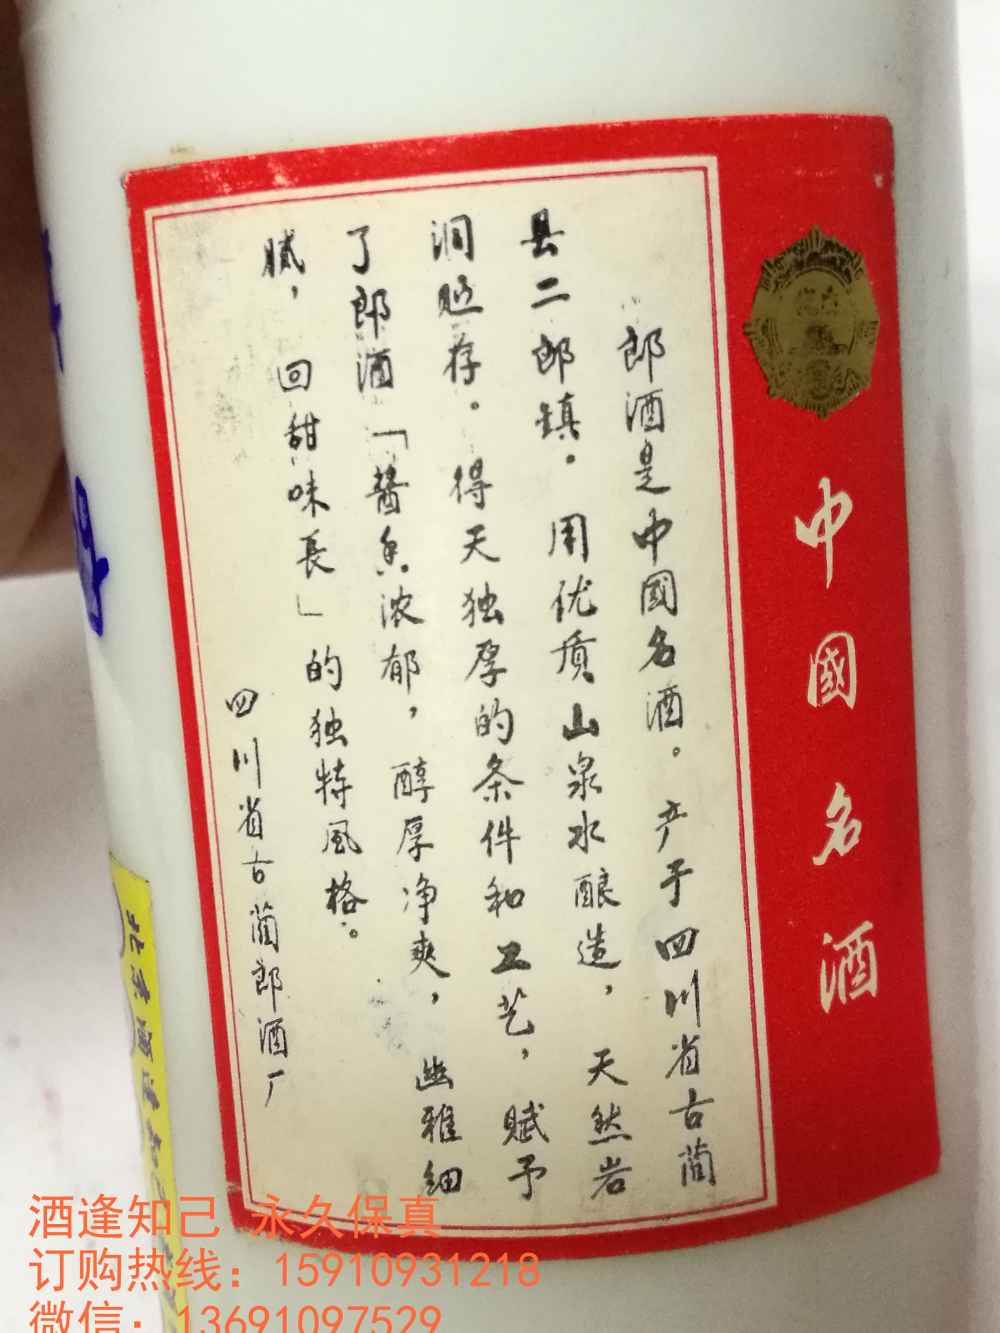 中國名酒
郎酒是中國名酒。产于四川省古蔺
县二郎镇。用优质山泉水酿造，天然岩
洞贮存。得天独厚的条件和工艺，赋予
了郎酒「醬香浓郁，醇厚净爽，幽雅细
腻，回甜味長」的独特風格。
四川省古蔺郎酒厂
酒逢知己 永久保真
订购热线：15910931218
微信：13691097529